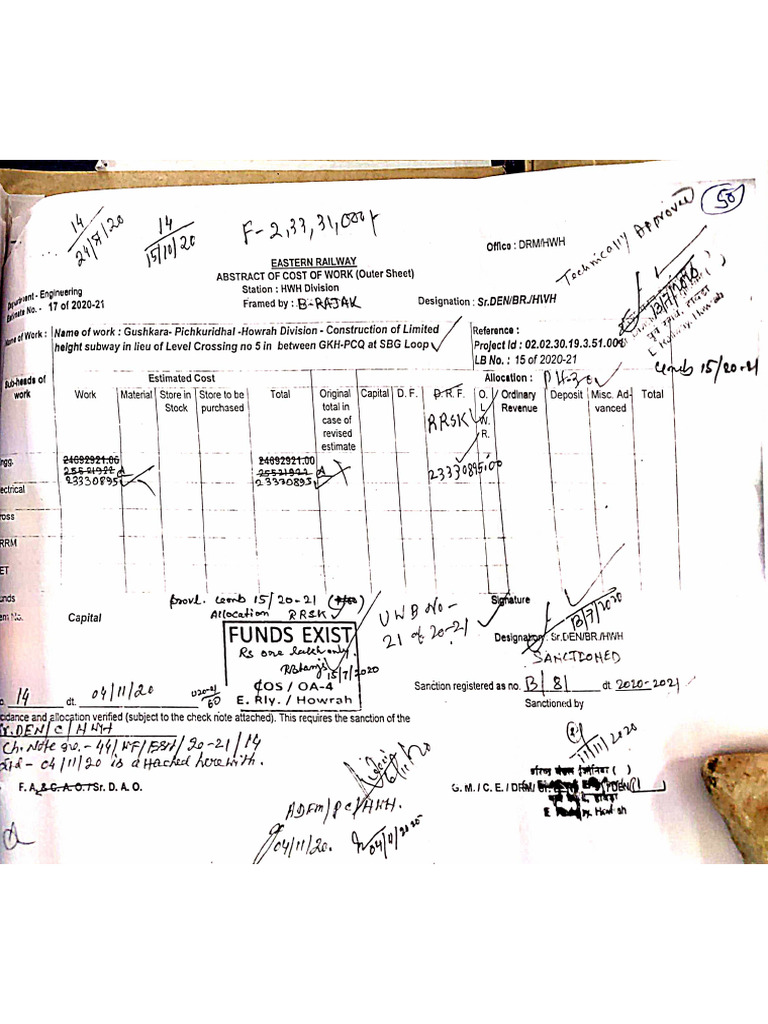 50
14
24/9/20
14
15/10/20
F-2,33,31,000/-
Office : DRM/HWH
Technically Approved
EASTERN RAILWAY
ABSTRACT OF COST OF WORK (Outer Sheet)
Station : HWH Division
Department - Engineering
Estimate No. - 17 of 2020-21
Framed by : B-RAJAK
Designation : Sr.DEN/BR./HWH
13/7/2020
E. Railway, Howrah
Name of Work :
Name of work : Gushkara- Pichkuridhal -Howrah Division - Construction of Limited
height subway in lieu of Level Crossing no 5 in between GKH-PCQ at SBG Loop
Reference :
Project Id : 02.02.30.19.3.51.001
LB No. : 15 of 2020-21
15/20-21
Sub-heads of work
Estimated Cost
Allocation : PH-30
Work
Material
Store in Stock
Store to be purchased
Total
Original total in case of revised estimate
Capital
D. F.
D. R. F.
RRSK
O. L. W. R.
Ordinary Revenue
Deposit
Misc. Advanced
Total
ngg.
24692921.00
24692921.00
25521922
25521922
23330895
23330895
23330895.00
ectrical
ross
RRM
ET
unds
Provl. 15/20-21
Allocation RRSK
em No.
Capital
UWB No-
21 of 20-21
Signature
13/7/2020
Designation : Sr.DEN/BR./HWH
SANCTIONED
FUNDS EXIST
Rs one lakh only.
15/7/2020
COS / OA-4
E. Rly. / Howrah
14 dt. 04/11/20
Sanction registered as no. B/8/ dt. 2020-2021
Sanctioned by
idance and allocation verified (subject to the check note attached). This requires the sanction of the
Sr.DEN/C/HWH
Ch. Note no.- 44/WF/ESM/20-21/14
Dtd- 04/11/20 is attached herewith.
11/11/2020
F. A. & C. A. O. / Sr. D. A. O.
G. M. / C. E. / DRM/
E Railway, Howrah
ADFM/PC/HWH.
04/11/20.
04/11/2020